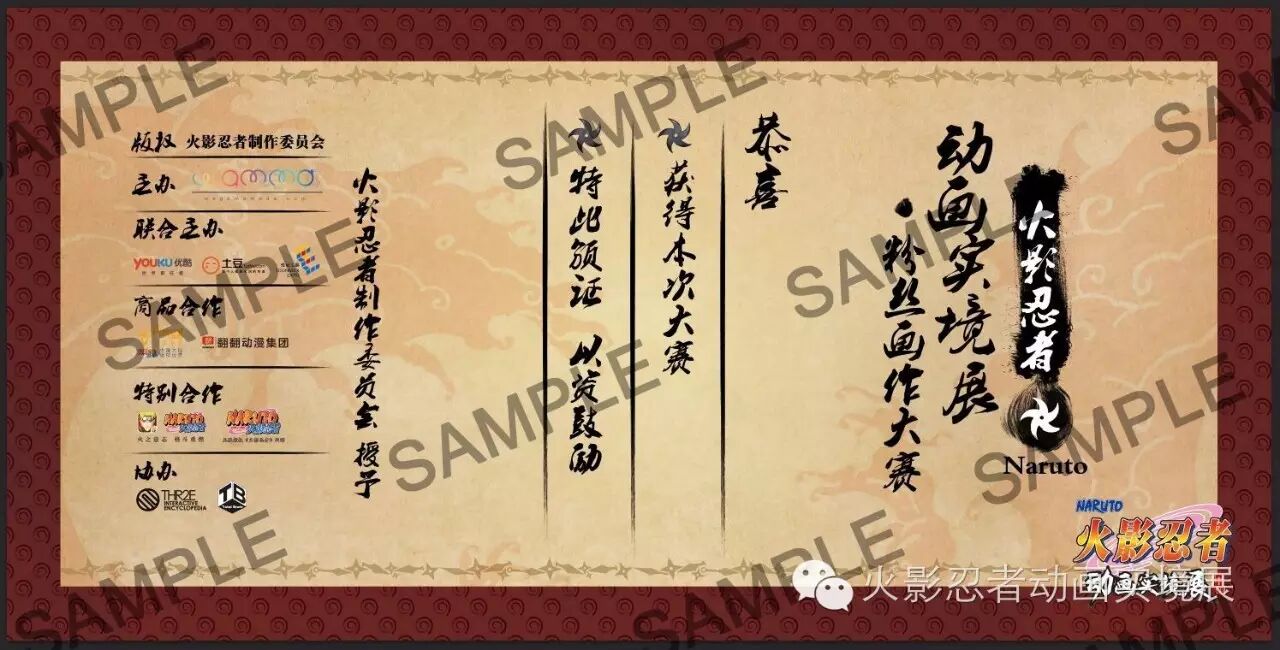 火影忍者
Naruto
动画实境展
·粉丝画作大赛
恭喜
获得本次大赛
特此颁证 以资鼓励
火影忍者制作委员会 授予
版权 火影忍者制作委员会
主办
联合主办
YOUKU 优酷
土豆
商品合作
翻翻动漫集团
特别合作
NARUTO
火影忍者
NARUTO
火影忍者
协办
THR2E
INTERACTIVE
ENCYCLOPEDIA
TB
NARUTO
火影忍者
动画实境展
火影忍者动画实境展
SAMPLE
SAMPLE
SAMPLE
SAMPLE
SAMPLE
SAMPLE
SAMPLE
SAMPLE
SAMPLE
SAMPLE
SAMPLE